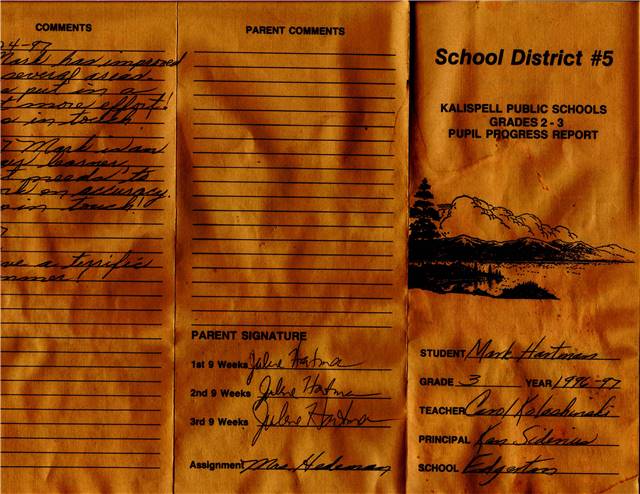 COMMENTS
4-97
Mark has improved
several areas
put in a
t more effort!
in touch.
Mark is an
learner,
t needs to
rk on accuracy.
in touch!
7
ve a terrific
mmer!
PARENT COMMENTS
PARENT SIGNATURE
1st 9 Weeks Julene Hartman
2nd 9 Weeks Julene Hartman
3rd 9 Weeks Julene Hartman
Assignment Mrs. Hedeman
School District #5
KALISPELL PUBLIC SCHOOLS
GRADES 2 - 3
PUPIL PROGRESS REPORT
STUDENT Mark Hartman
GRADE 3 YEAR 1996-97
TEACHER Carol Kalashinski
PRINCIPAL Ken Siderius
SCHOOL Edgerton